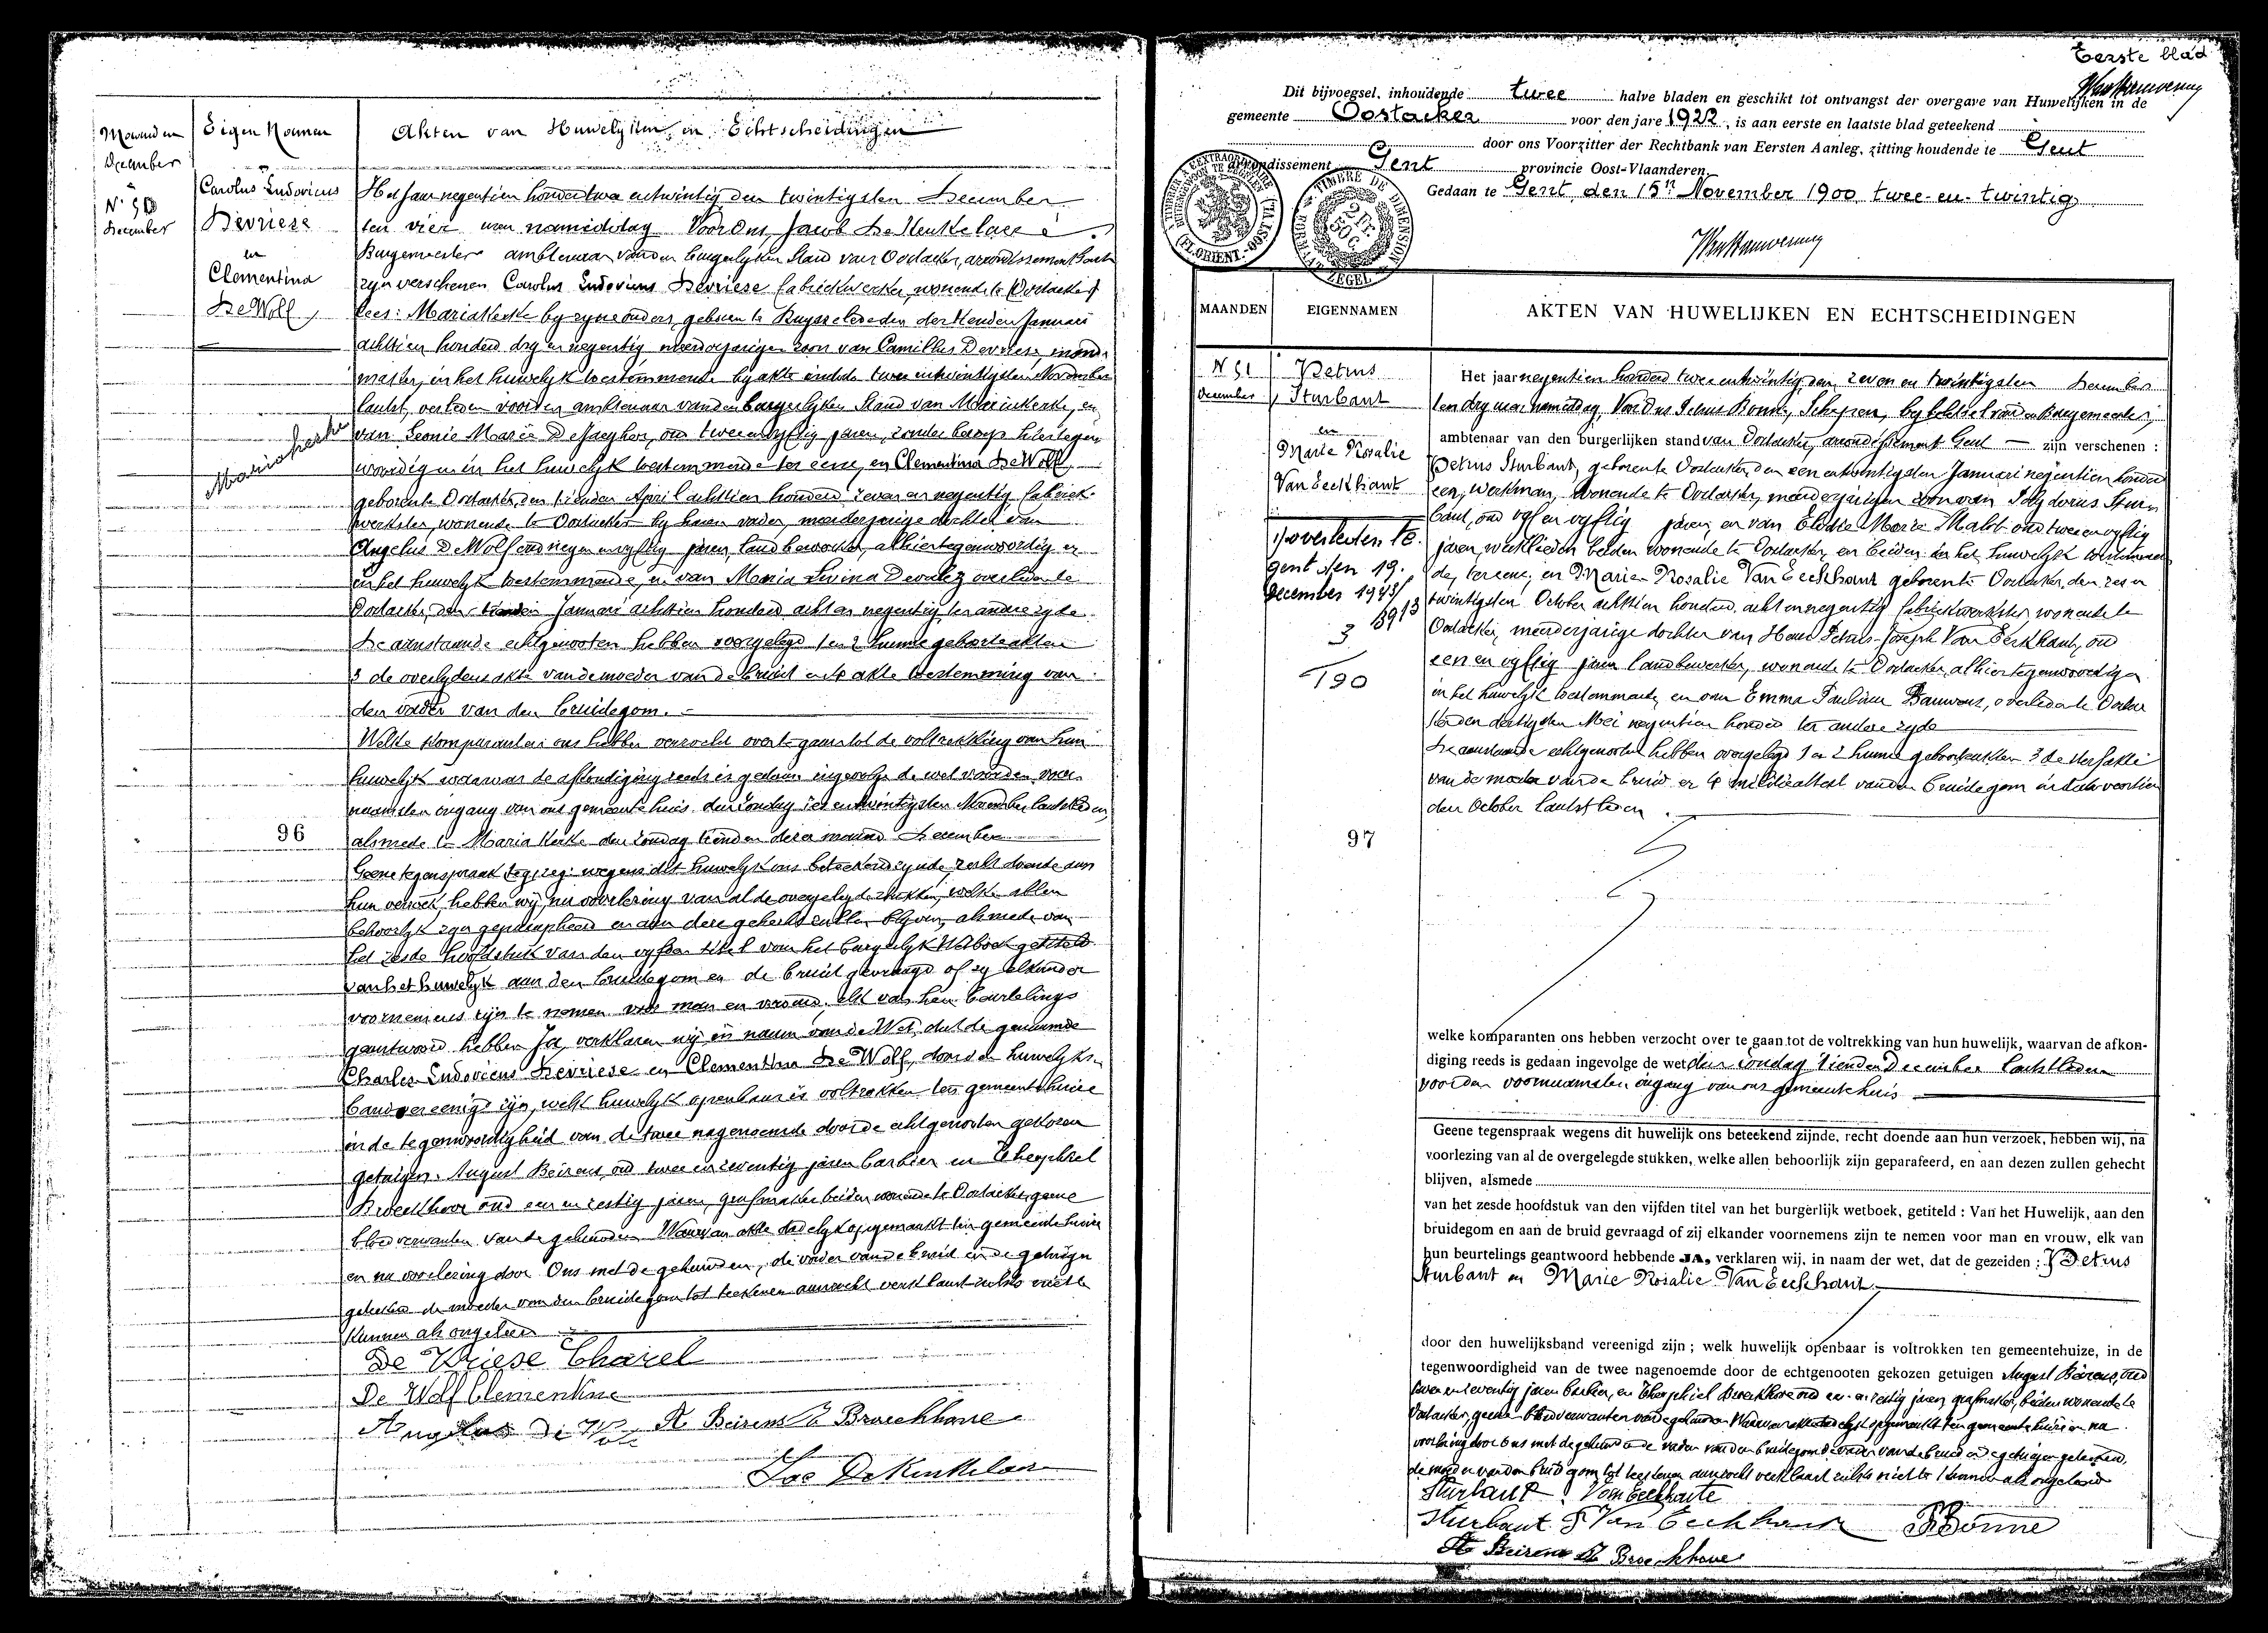 Maanden
December
Eigen Naamen
Akten van Huwelyken en Echtscheidingen
N° 50
December
Carolus Ludovicus
Devriese
en
Clementina
De Wolf
Mariakerke
Het jaar negentien honderd twee en twintig den twintigsten December
ten vier uren namiddag Voor Ons, Jacob De Keukelaere
Burgemeester ambtenaar van den burgerlyken Stand van Oostacker, arrondissement Gent
zyn verschenen Carolus Ludovicus Devriese fabriekwerker, wonende te Oostacker
lees: Mariakerke by zyne ouders, geboren te Ruysselede den Januari
achttien honderd dry en negentig meerderjarigen zoon van Camillus Devriese,
in het huwelyk toestemmende by akte in date twee en twintigsten November
laatst, verleden voor den ambtenaar van den burgerlyken Stand van Mariakerke, en
van Leonie Marie De Jaeghere, oud twee en vyftig jaren, zonder beroep hiertegen
woordig en in het huwelyk toestemmende ter eene, en Clementina De Wolf,
geboren te Oostacker, den tienden April achttien honderd zeven en negentig fabriek
werkster, wonende te Oostacker by haren vader, meerderjarige dochter van
Angelus De Wolf oud negen en vyftig jaren, landbewerker, alhier tegenwoordig en
in het huwelyk toestemmende, en van Maria Livina overleden te
Oostacker, den Januari achttien honderd acht en negentig ter andere zyde
De aanstaande echtgenooten hebben voorgelegd 1 en 2 hunne geboorteakten
3 de overlydensakte van de moeder van de bruid en 4 akte toestemming van
den vader van den bruidegom.
Welke komparanten ons hebben verzocht over te gaan tot de voltrekking van hun
huwelyk waarvan de afkondiging reeds is gedaan ingevolge de wet voor den voor
naamsten ingang van ons gemeentehuis den zondag zes en twintigsten November laatstleden
alsmede te Mariakerke den zondag tienden dezer maand December
96
Geene tegenspraak wegens dit huwelyk ons beteekend zynde, recht doende aan
hun verzoek, hebben wy, na voorlezing van al de overgelegde stukken, welke allen
behoorlyk zyn geparapheerd en aan deze gehecht zullen blyven, alsmede van
het zesde hoofdstuk van den vyfden titel van het burgerlyk Wetboek getiteld
van het huwelyk aan den bruidegom en de bruid gevraagd of zy elkander
voornemens zyn te nemen voor man en vrouw, elk van hen beurtelings
geantwoord hebben Ja, verklaren wy in naam van de Wet, dat de genoemde
Charles Ludovicus Devriese en Clementina De Wolf, door den huwelyks
band vereenigd zyn, welk huwelyk openbaar is voltrokken ten gemeentehuize
in de tegenwoordigheid van de twee nagenoemde door de echtgenooten gekozen
getuigen. August Beirens, oud twee en zeventig jaren barbier en Theophiel
Broeckhove oud een en zestig jaren, grafmaker beiden wonende te Oostacker geene
bloedverwanten van de gehuwden Waarvan akte dadelyk opgemaakt ten gemeentehuize
en na voorlezing door Ons met de gehuwden, de vader van de bruid en de getuigen
geteekend de moeder van den bruidegom tot teekenen aanzocht verklaart zulks niet te
kunnen als ongeleerd
De Vriese Charel
De Wolf Clementine
Angelus De Wolf A. Beirens T. Broeckhove
Jac De Keukelaere
Eerste blad
Dit bijvoegsel, inhoudende twee halve bladen en geschikt tot ontvangst der overgave van Huwelijken in de
gemeente Oostacker voor den jare 1922, is aan eerste en laatste blad geteekend
door ons Voorzitter der Rechtbank van Eersten Aanleg, zitting houdende te Gent
arrondissement Gent provincie Oost-Vlaanderen.
Gedaan te Gent, den 15n November 1900 twee-en-twintig
TIMBRE DE DIMENSION
2 FR. 50 C.
FORMAAT ZEGEL
MAANDEN
EIGENNAMEN
AKTEN VAN HUWELIJKEN EN ECHTSCHEIDINGEN
N 51
December
Petrus
Sturbaut
en
Marie Rosalie
Van Eeckhaut
overleden te
Gent den 19.
December 1943
3913
3
190
97
Het jaar negentien honderd twee en twintig, den zeven en twintigsten December
ten dry uren namiddag, Voor Ons Petrus Bonne, Schepen, by belet van den Burgemeester,
ambtenaar van den burgerlijken stand van Oostacker, arrondissement Gent — zijn verschenen :
Petrus Sturbaut, geboren te Oostacker, den een en twintigsten Januari negentien honderd
een, werkman, wonende te Oostacker, meerderjarigen zoon van Isidorus Stur
baut, oud vyf en vyftig jaren, en van Elodie Marie oud twee en vyftig
jaren, werklieden beiden wonende te Oostacker, en beiden in het huwelyk toestemmen
de, ter eene, en Marie Rosalie Van Eeckhaut geboren te Oostacker, den zes en
twintigsten October achttien honderd acht en negentig fabriekwerkster, wonende te
Oostacker, meerderjarige dochter van Petrus-Joseph Van Eeckhaut, oud
een en vyftig jaren landbewerker, wonende te Oostacker, alhier tegenwoordig en
in het huwelyk toestemmende, en van Emma Pauline Bauwens, overleden te Oostac
ker den dertigsten Mei negentien honderd ter andere zyde
De aanstaande echtgenooten hebben overgelegd 1 en 2 hunne geboorteakten 3 de sterfakte
van de moeder van de bruid en 4 militieattest van den bruidegom in date veertien
den October laatstleden.
welke komparanten ons hebben verzocht over te gaan tot de voltrekking van hun huwelijk, waarvan de afkon-
diging reeds is gedaan ingevolge de wet den zondag tienden December laatstleden
voor den voornaamsten ingang van ons gemeentehuis
Geene tegenspraak wegens dit huwelijk ons beteekend zijnde, recht doende aan hun verzoek, hebben wij, na
voorlezing van al de overgelegde stukken, welke allen behoorlijk zijn geparafeerd, en aan dezen zullen gehecht
blijven, alsmede
van het zesde hoofdstuk van den vijfden titel van het burgerlijk wetboek, getiteld : Van het Huwelijk, aan den
bruidegom en aan de bruid gevraagd of zij elkander voornemens zijn te nemen voor man en vrouw, elk van
hun beurtelings geantwoord hebbende JA, verklaren wij, in naam der wet, dat de gezeiden : Petrus
Sturbaut en Marie Rosalie Van Eeckhaut.
door den huwelijksband vereenigd zijn ; welk huwelijk openbaar is voltrokken ten gemeentehuize, in de
tegenwoordigheid van de twee nagenoemde door de echtgenooten gekozen getuigen August Beirens, oud
twee en zeventig jaren barbier, en Theophiel Broeckhove oud een en zestig jaren, grafmaker, beiden wonende te
Oostacker, geene bloedverwanten van de gehuwden Waarvan akte dadelyk opgemaakt ten gemeentehuize en na
voorlezing door Ons met de gehuwden de vader van den bruidegom de vader van de bruid en de getuigen geteekend,
de moeder van den bruidegom tot teekenen aanzocht verklaart zulks niet te kunnen als ongeleerd
Sturbaut Van Eeckhaute
Sturbaut P Van Eeckhaut PBonne
A. Beirens T. Broeckhove